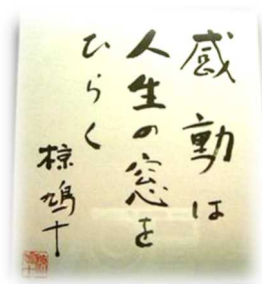 感動は
人生の窓を
ひらく
椋鳩十